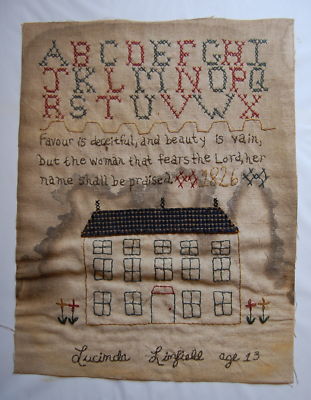 ABCDEFGHI
JKLMNOPQ
RSTUVWX
Favour is deceitful, and beauty is vain,
but the woman that fears the Lord, her
name shall be praised XX 1826 XX
Lucinda Linfield age 13